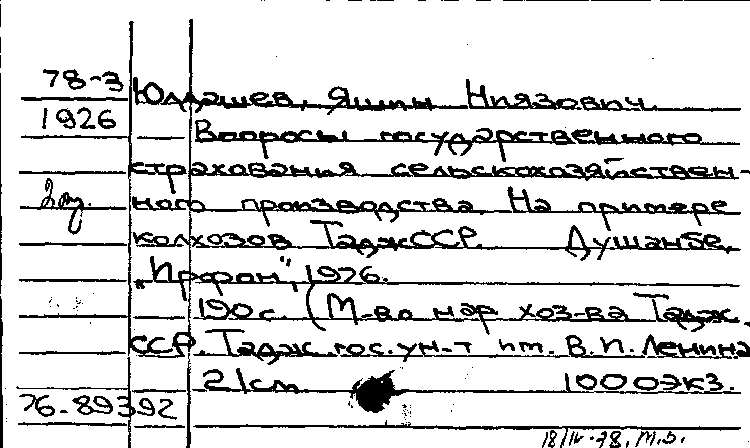 78-3 Юлдашев, Яшин Ниязович.
1926 Вопросы государственного
страхования сельскохозяйствен-
ного производства. На примере
колхозов ТаджССР. Душанбе,
"Ирфон", 1976.
190 с. (М-во нар хоз-ва Тадж.
ССР. Тадж. гос. ун-т им. В. И. Ленина
21 см 1000 экз.
76-89392
18/IV-78, М.Б.